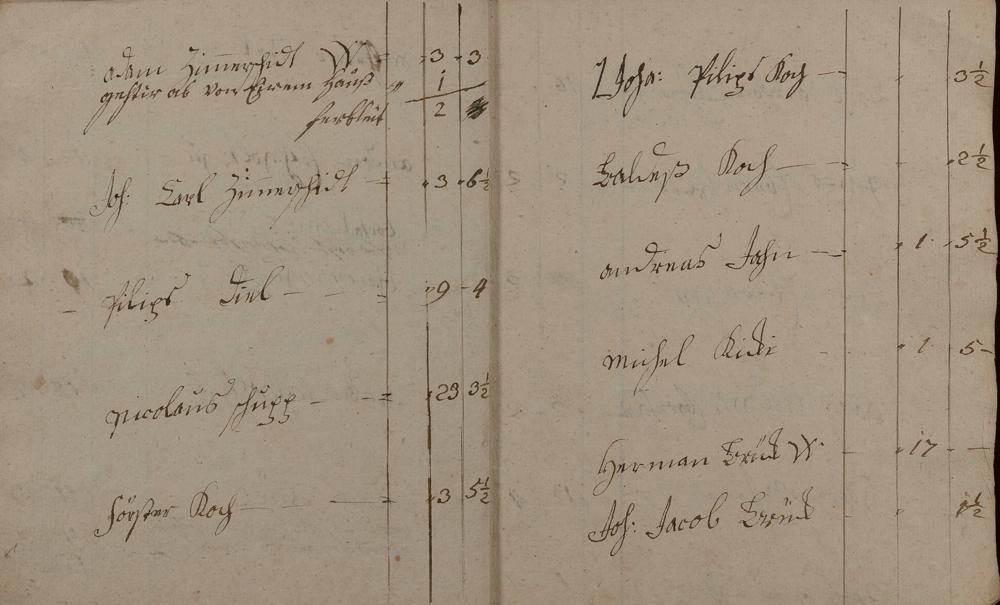 Adam Zimmerschidt W - 3 - 3
gehtir ab von Ihrem Hauß " 1
ferbleibt 2
Joh: Carl Zimmerschidt = - 3 - 6½
Pilips Diel - - = - 9 - 4
Nicolaus Schupp - - = - 23 3½
Förster Koch - - = - 3 5½
Joha: Pilips Koch - - 3½
Baldeß Koch - - 2½
Andreas Jahn - - 1 - 5½
Michel - 1 5 -
Herman Brück W: - - 17 - -
Joh: Jacob Brück - - 1½